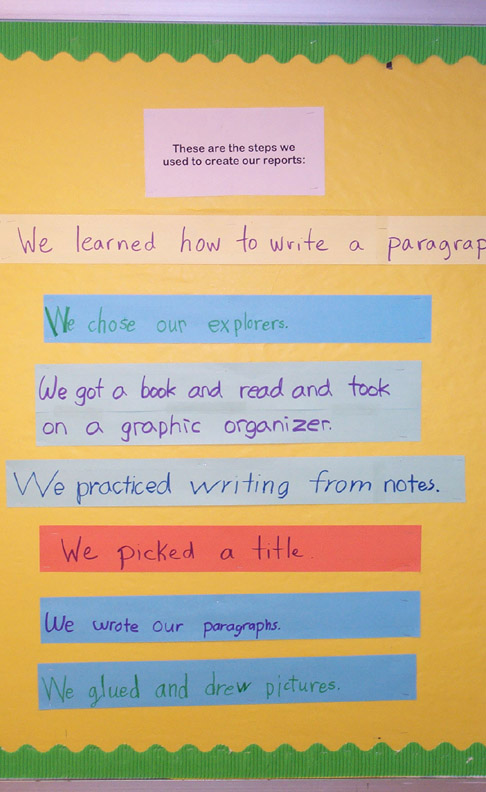 These are the steps we
used to create our reports:
We learned how to write a paragrap
We chose our explorers.
We got a book and read and took
on a graphic organizer.
We practiced writing from notes.
We picked a title.
We wrote our paragraphs.
We glued and drew pictures.